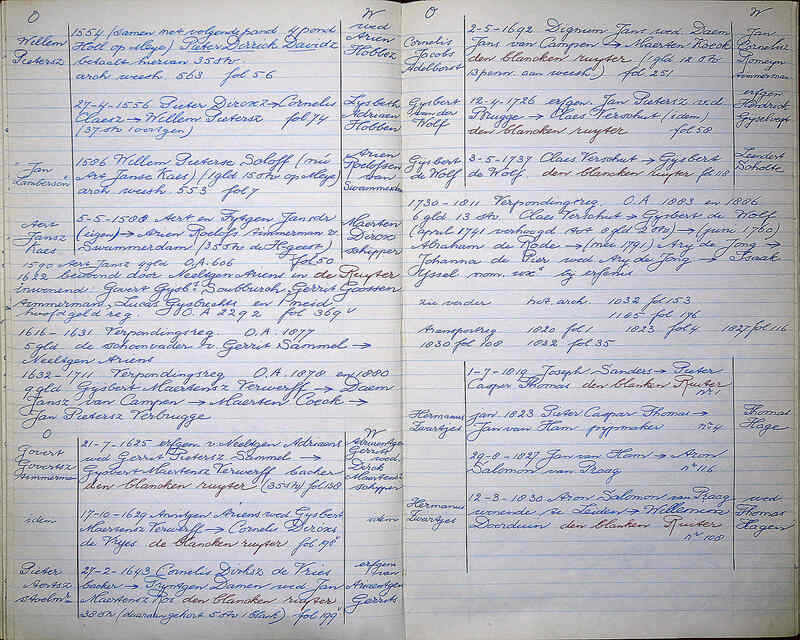 O
W
Willem
Pietersz
1554 (samen met volgende pand 4 pond
Holl op Aleye) Pieter Dirrick Davidsz
betaalt hiervan 35 str.
arch weesh. 563 fol 56
wed
Arien
Hobbez
27-4-1556 Pieter Diroxz → Cornelis
Claesz → Willem Pietersz fol 74
(37 stv 10 ortgen)
Lysbeth
Adriaen
Hobben
"Jan
Lambertsn"
1586 Willem Pieterse Soloff (nu
Art Janse Kaes) (1 gld 15 stv op Aleye)
arch weesh. 553 fol 7
Arien
Roelofsen
van
Swammerda
Aert
Jansz
Kaes
5-5-1588 Aert en Fytgen Jansdr
(eigen) → Arien Roelofs. timmerman v.
Swammerdam (35 stv de Hgeest)
fol 50
Maerten
Dirox
schipper
1190 Aert Jansz 4 gld O.A. 606
1623 bewoond door Neeltgen Ariens en de Ruyter
inwonend: Govert Gysb. Soubburch, Gerrit Goossen
timmerman, Lucas Gysbrechts en 1 meid
hoofdgeld reg. O.A. 2292 fol 369v
1616 - 1631 Verpondingsreg. O.A. 1877
5 gld de schoonvader v. Gerrit Sammel →
Neeltgen Ariens
1632-1711 Verpondingsreg. O.A. 1878 en 1880
9 gld Gysbert Maertensz Verwerff → Daem
Jansz van Campen → Maerten Coeck →
Jan Pietersz Verbrugge
O
W
Govert
Govertsz
timmerma
21-7-1625 erfgen v Neeltgen Adriaens
wid Gerrit Pietersz Sammel →
Gysbert Maertensz Verwerff backer
den blancken ruyter (35 stv) fol 138
Ariaentgen
Gerrits
wed.
Dirck
Maertens
schipper
idem
17-10-1629 Anntgen Ariens wed Gysbert
Maertensz Verwerff → Cornelis Diroxs
de Vryes de blancken ruyter fol 198v
idem
Pieter
Aertsz
stoeln
27-2-1643 Cornelis Dirksz de Vries
backer → Fyntgen Damen wed Jan
Maertensz Koi den blancken ruyter
35 stv (daaraan gehort 5 stv 1 blank) fol 199v
erfgen
van
Ariaentgen
Gerrits
O
W
Cornelis
Jacobs
Adelborst
2-5-1692 Dignum Jans wed. Daem
Jans van Campen → Maerten Koeck
den blancken ruyter (1 gld 12 stv
13 penn. aan weesh.) fol 251
Jan
Cornelisz
Romeyn
timmerman
Gysbert
van der
Wolf
12-4-1726 erfgen Jan Pietersz v.d.
Brugge → Claes Verschut (idem)
den blancken ruyter fol 58
erfgen
Hendrick
Gyselvegt
Gysbert
de Wolf
3-5-1737 Claes Verschut → Gysbert
de Wolf. den blancken ruyter fol 118
Leendert
Scholte
1730 - 1811 Verpondingreg. O.A. 1883 en 1886
6 gld. 13 stv. Claes Verschut → Gysbert de Wolf
(april 1741 verhoogd tot 8 gld 2 stv) → (juni 1760)
Abraham de Rode → (mei 1791) Ary de Jong →
Johanna de Pier wed Ary de Jong → Isaak
Yssel nom. ux" by erfenis
zie verder not. arch. 1032 fol 153
1185 fol 176
transportreg 1820 fol 1 1823 fol 4 1827 fol 116
1830 fol 108 1832 fol 35
1-7-1819 Joseph Sanders → Pieter
Caspar Thomas den blanken Ruiter
no 1
Hermanus
Zwartjes
jan. 1823 Pieter Caspar Thomas →
Jan van Ham pijpmaker no 4
Thomas
Hage
29-8-1827 Jan van Ham → Aron
Salomon van Praag no 116
Hermanus
Zwartjes
12-3-1830 Aron Salomon van Praag
wonende te Leiden → Willemina
Doorduin den blanken Ruiter
no 108
wed
Thomas
Hagen